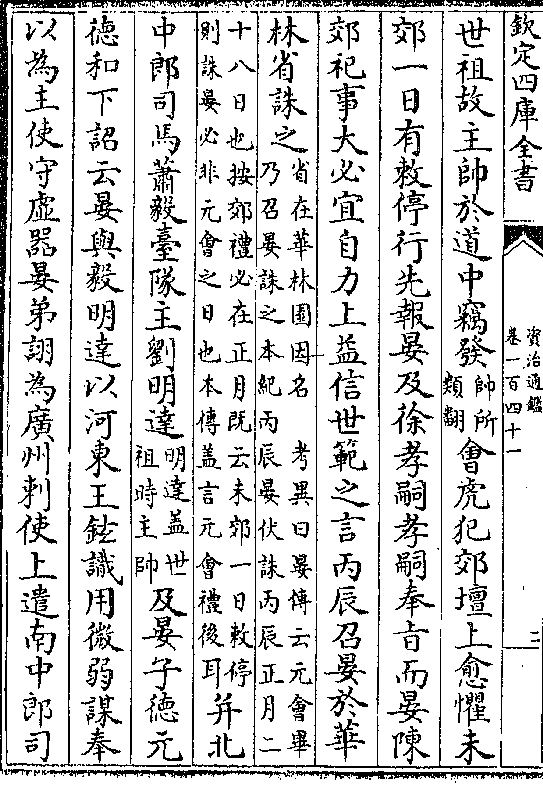 欽定四庫全書
資治通鑑
卷一百四十一
二
世祖故主帥於道中竊發帥所類翻會虎犯郊壇上愈懼未
郊一日有敕停行先報晏及徐孝嗣孝嗣奉旨而晏陳
郊祀事大必宜自力上益信世範之言丙辰召晏於華
林省誅之省在華林園因名考異曰晏傳云元會畢乃召晏誅之本紀丙辰晏伏誅丙辰正月二
十八日也按郊禮必在正月既云未郊一日敕停則誅晏必非元會之日也本傳盖言元會禮後耳并北
中郎司馬蕭毅臺隊主劉明達明達盖世祖時主帥及晏子德元
德和下詔云晏與毅明達以河東王鉉識用微弱謀奉
以為主使守虛器晏弟詡為廣州刺使上遣南中郎司